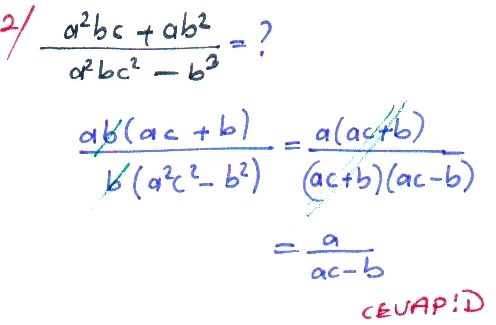 2/ a²bc + ab² / a²bc² - b³ = ?
ab(ac + b) / b(a²c² - b²) = a(ac+b) / (ac+b)(ac-b)
= a / ac-b
CEVAP:D